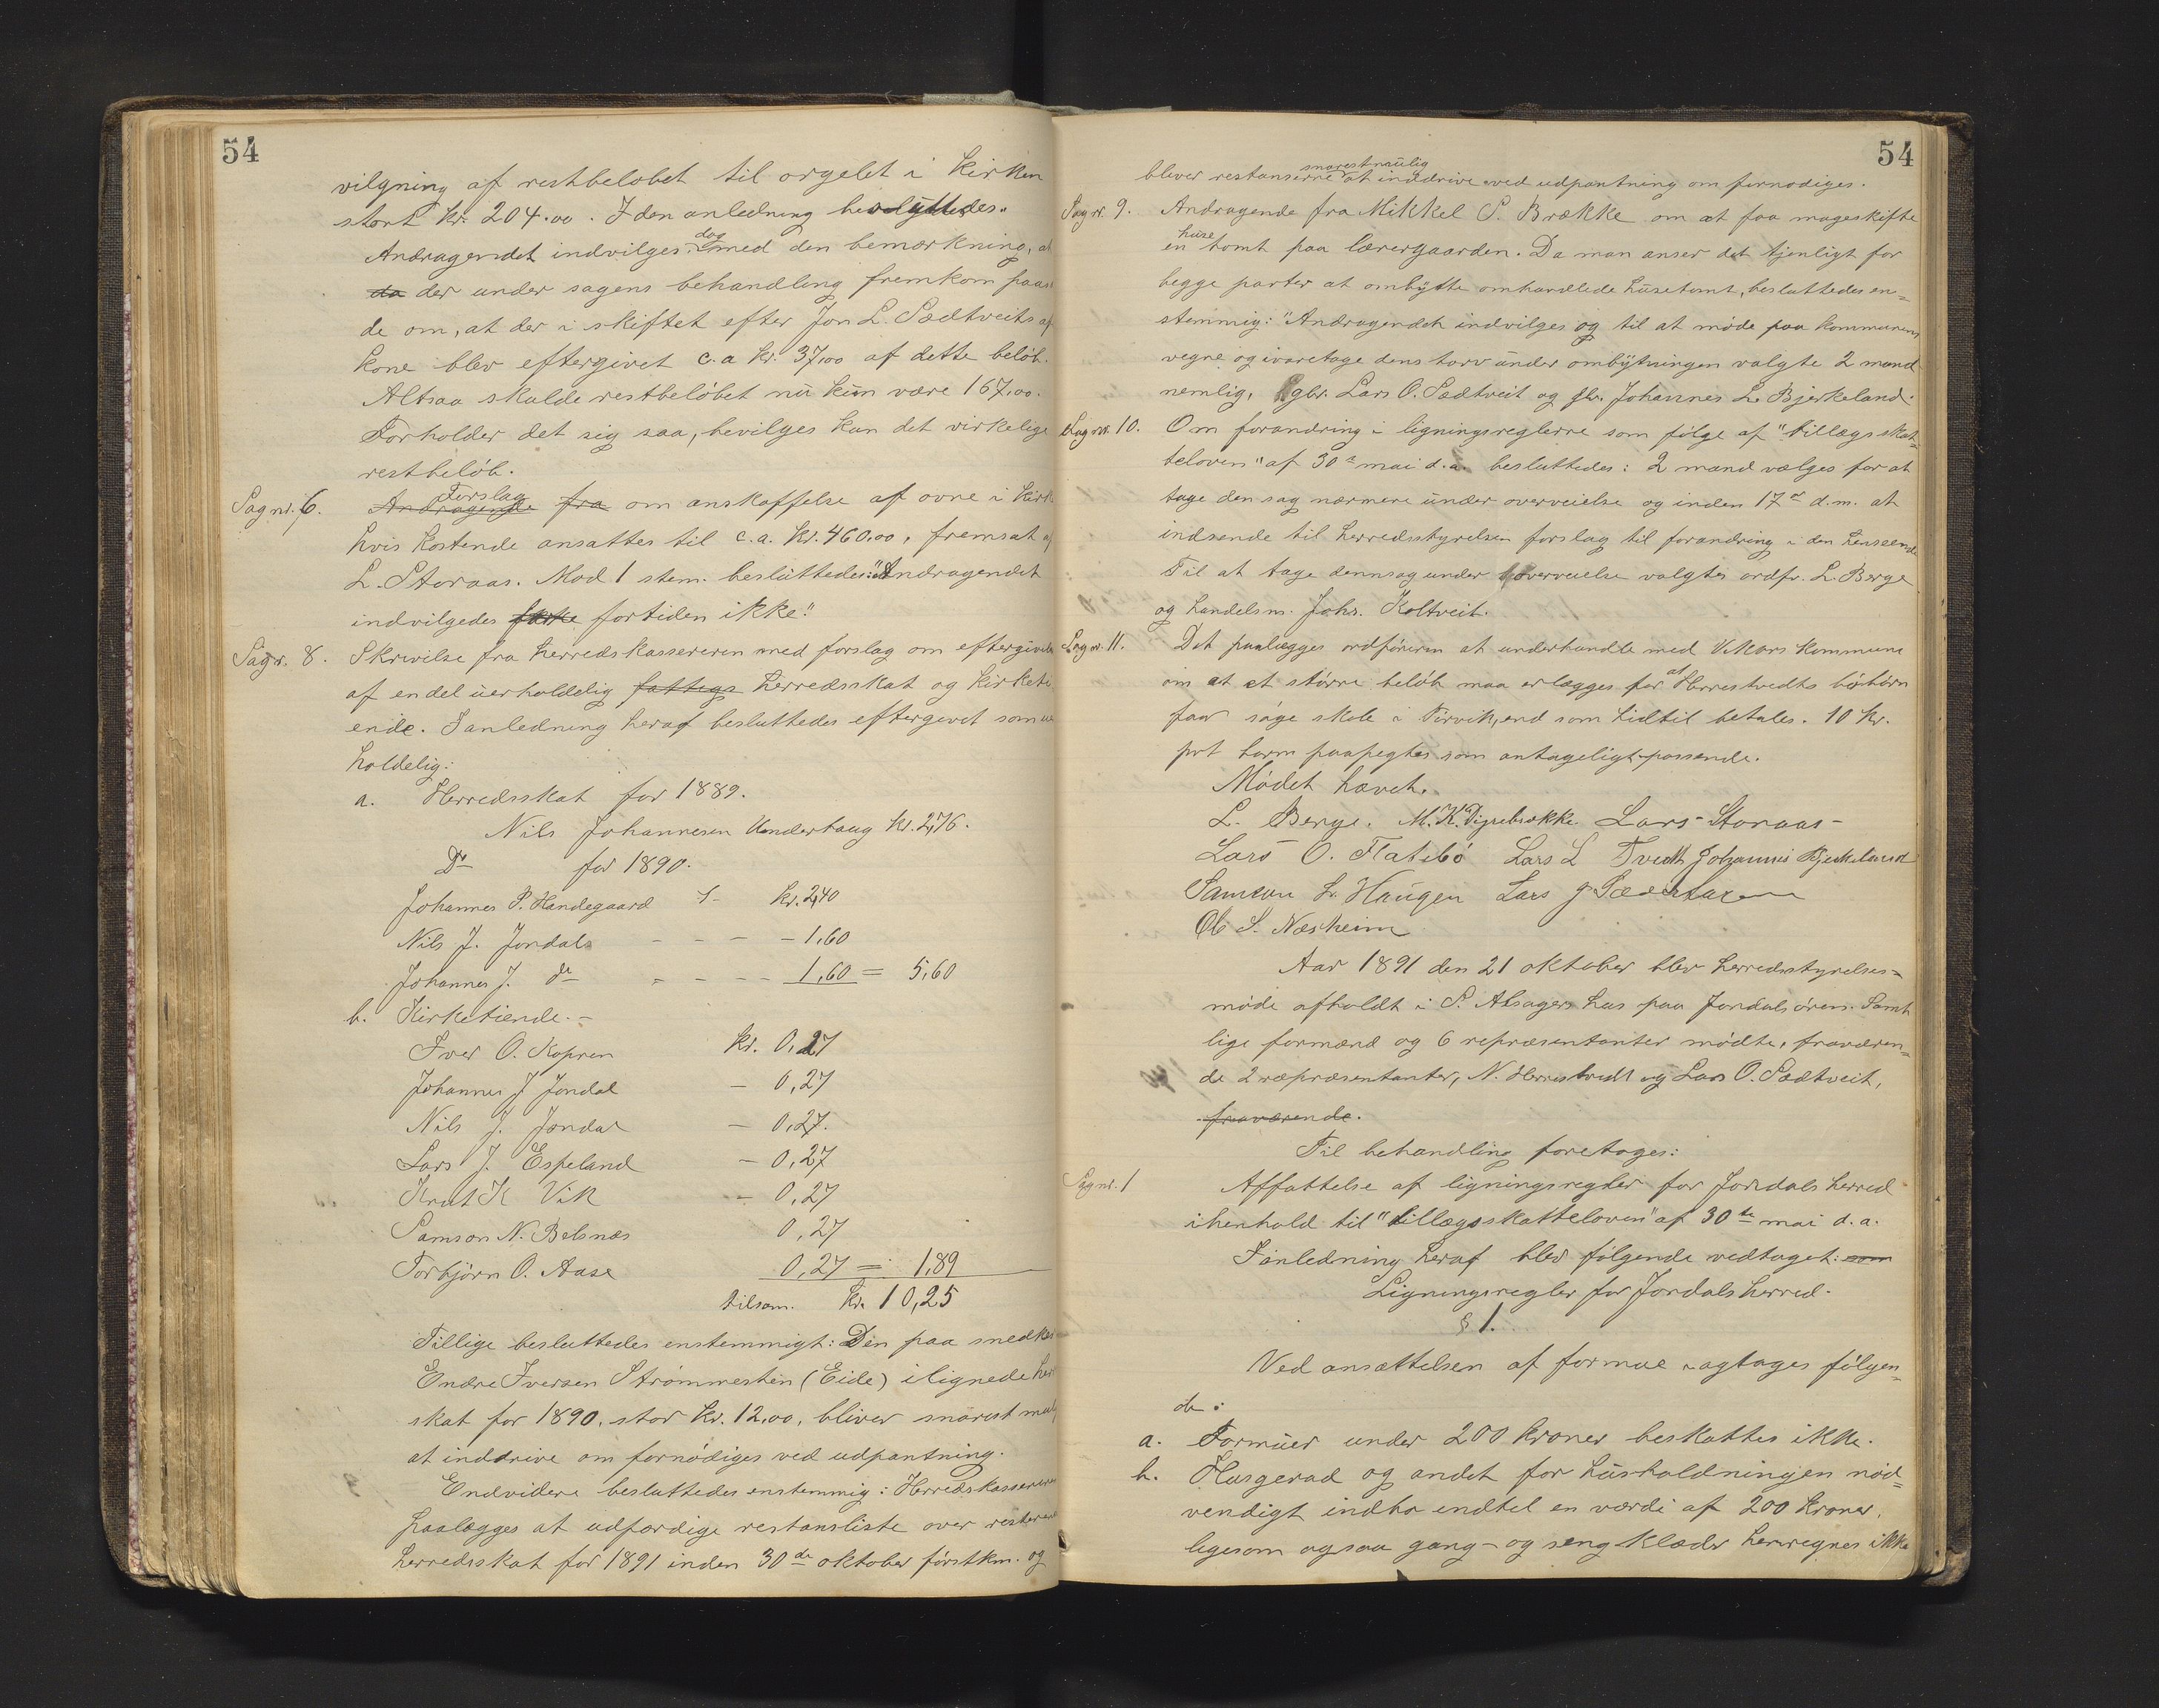 54
vilgning af restbeløbet til orgelet i kirken
stort kr. 204.00. I den anledning besluttedes:
Andragendet indvilges, dog med den bemærkning, at
da der under sagens behandling fremkom paas
de om, at der i skiftet efter Jon L. Sædtveits
kone blev eftergivet c.a kr. 37,00 af dette beløb.
Altsaa skulde restbeløbet nu kun være 167,00.
Forholder det sig saa, bevilges kun det virkelige
restbeløb.
Sag nr. 6. Andragende Forslag fra om anskaffelse af ovne i kirk
hvis kostende ansattes til c.a. kr. 460,00, fremsat af
L. Storaas. Mod 1 stem. besluttedes: "Andragendet
indvilgedes for tiden ikke."
Sag nr. 8. Skrivelse fra herredskassereren med forslag om eftergivelse
af endel uerholdelig fattigs herredsskat og kirketi
ende. I anledning heraf besluttedes eftergivet som ue
holdelig:
a. Herredsskat for 1889.
Nils Johannesen Underhaug kr. 2,76.
Do for 1890.
Johannes P. Handegaard kr. 2,40
Nils J. Jondal - - - - 1,60
Johannes J. do - - - - 1,60 = 5,60
b. Kirketiende. -
Iver O. Kopren kr. 0,27
Johannes J Jondal - 0,27
Nils J. Jondal - 0,27.
Lars J. Espeland - 0,27
Knut K Vik - 0,27
Samson N. Belsnæs 0,27
Torbjørn O. Aase 0,27 = 1,89
tilsam. kr. 10,25
Tillige besluttedes enstemmigt: Den paa snedker
Endre Iversen Strømmestein (Eide) ilignede her
skat for 1890, stor kr. 12,00, bliver snarest mul
at inddrive om fornødiges ved udpantning.
Endvidere besluttedes enstemmig: Herredskassereren
paalægges at udfærdige restansliste over resterend
herredsskat for 1891 inden 30de oktober førstkm. og
54
bliver restanserne snarest mulig at inddrive ved udpantning om fornødiges.
Sag nr. 9. Andragende fra Mikkel S. Brække om at faa mageskifte
en huse tomt paa lærergaarden. Da man anser det tjenligt for
begge parter at ombytte omhandlede husetomt, besluttedes en=
stemmig: "Andragendet indvilges og til at møde paa kommunens
vegne og ivaretage dens tarv under ombytningen valgte 2 mand
nemlig, gbr. Lars O. Sædtveit og gbr. Johannes L. Bjerkeland.
Sag nr. 10. Om forandring i ligningsreglerne som følge af "tillægsskat=
teloven" af 30te mai d.a. besluttedes: 2 mand vælges for at
tage den sag nærmere under overveielse og inden 17de d.m. at
indsende til herredsstyrelsen forslag til forandring i den henseende
Til at tage denne sag under overveielse valgtes ordfr. L. Berge
og handelsm. Johs. Koltveit.
Sag nr. 11. Det paalægges ordføreren at underhandle med Vikørs kommune
om at et større beløb maa erlægges for at Herrestvedts børn
faar søge skole i Tirvik, end som hidtil betales. 10 kr.
prt barn paapegtes som antageligt passende.
Mødet hævet.
L. Berge. M. K. Digrebrække. Lars Storaas -
Lars O. Flatebø Lars L Tvedt Johannis Bjerkeland
Samson L. Haugen Lars J
Ole S. Næsheim
Aar 1891 den 21 oktober blev herredsstyrelses=
møde afholdt i S. Alsagers hus paa Jondalsøren. Samt
lige formænd og 6 repræsentanter mødte, fraværen=
de 2 repræsentanter, N. Herrestvedt og Lars O. Sædtveit,
fraværende.
Til behandling foretages:
Sag nr. 1 Affattelse af ligningsregler for Jondals herred
ihenhold til "tillægsskatteloven" af 30te mai d.a.
I anledning heraf blev følgende vedtaget: som
Ligningsregler for Jondals herred.
§ 1.
Ved ansættelsen af formue iagtages følgen=
de:
a. Formuer under 200 kroner beskattes ikke.
b. Husgerad og andet for husholdningen nød=
vendigt indbo indtil en værdi af 200 kroner,
ligesom ogsaa gang- og sengklæder henregnes ikke